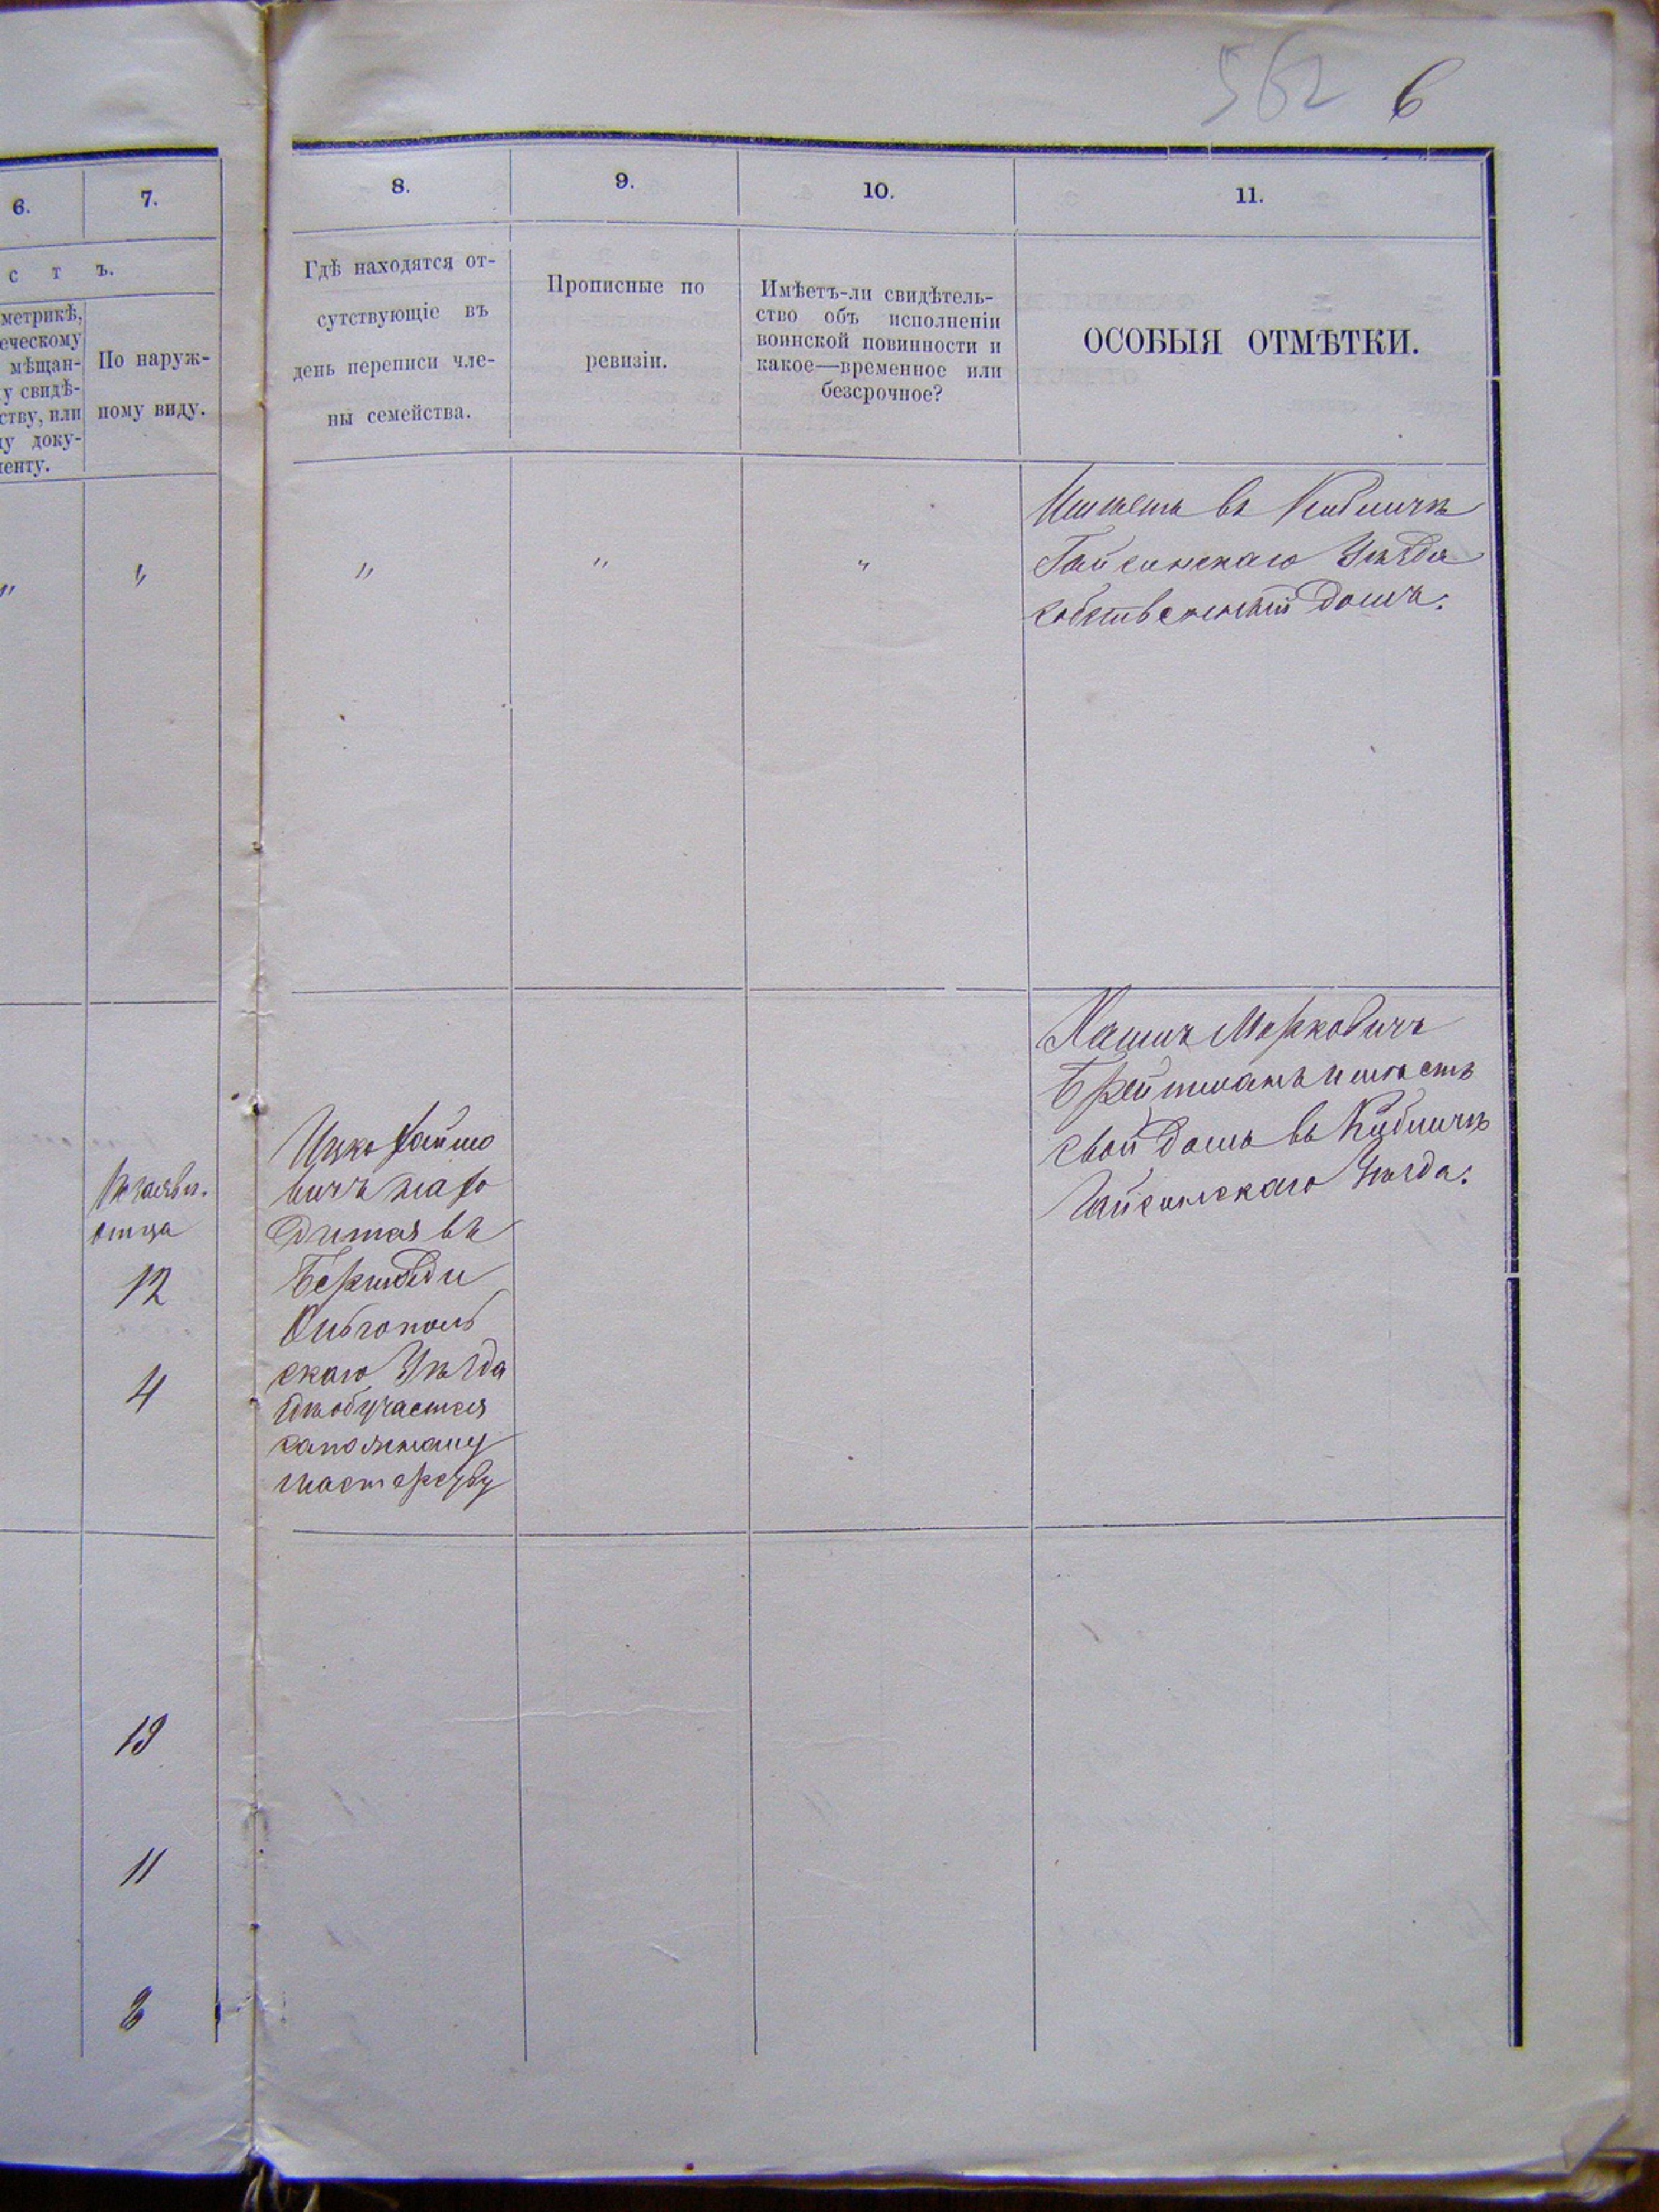 562 6
6.
7.
8.
9.
10.
11.
с т ъ.
метрикѣ,
еческому
мѣщан-
у свидѣ-
ству, или
у доку-
енту.
По наруж-
ному виду.
Гдѣ находятся от-
сутствующіе въ
день переписи чле-
ны семейства.
Прописные по
ревизіи.
Имѣетъ-ли свидѣтель-
ство объ исполненіи
воинской повинности и
какое—временное или
безсрочное?
ОСОБЫЯ ОТМѢТКИ.
" " " " "
Имѣетъ въ Кибличѣ
Гайсинскаго Уѣзда
собственный домъ.
отца
12
4
Ицко Хаимо
вичъ нахо
дится въ
Бершади
Ольгополь
скаго Уѣзда
обучается
мастерству
Хаимъ Мерковичъ
Брейтманъ имѣетъ
свой домъ въ Кубличѣ
Гайсинскаго Уѣзда.
19
11
8